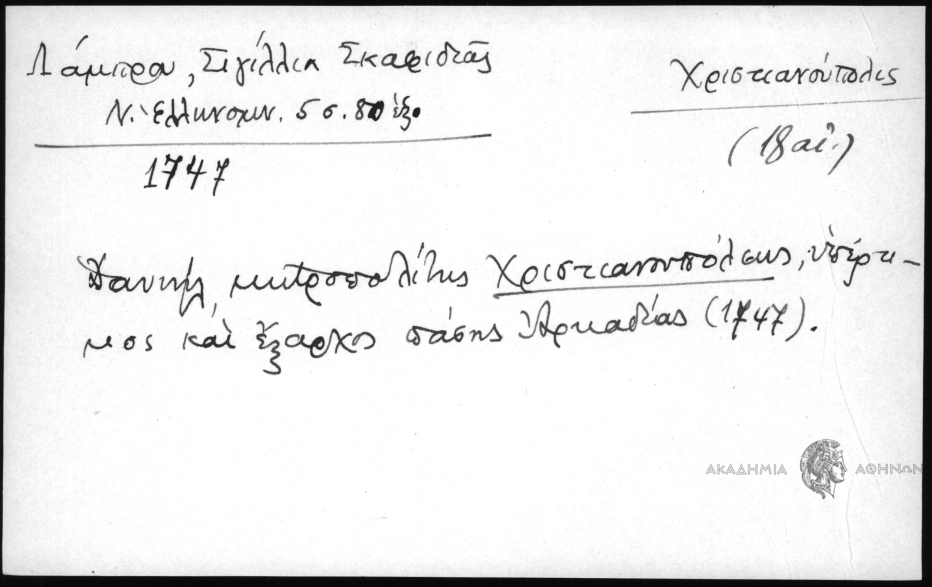 Λάμπρου, Σιγίλλια Σκαφιδιᾶς
Ν. Ἑλληνομν. 5 σ. 80 ἑξ.
1747
Χριστιανούπολις
(18 αἰ.)
Δανιήλ, μητροπολίτης Χριστιανουπόλεως, ὑπέρτι-
μος καὶ ἔξαρχος πάσης Ἀρκαδίας (1747).
ΑΚΑΔΗΜΙΑ ΑΘΗΝΩΝ